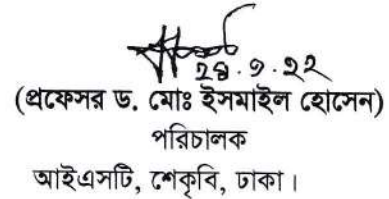 ২৪.৭.২২
(প্রফেসর ড. মোঃ ইসমাইল হোসেন)
পরিচালক
আইএসটি, শেকৃবি, ঢাকা।